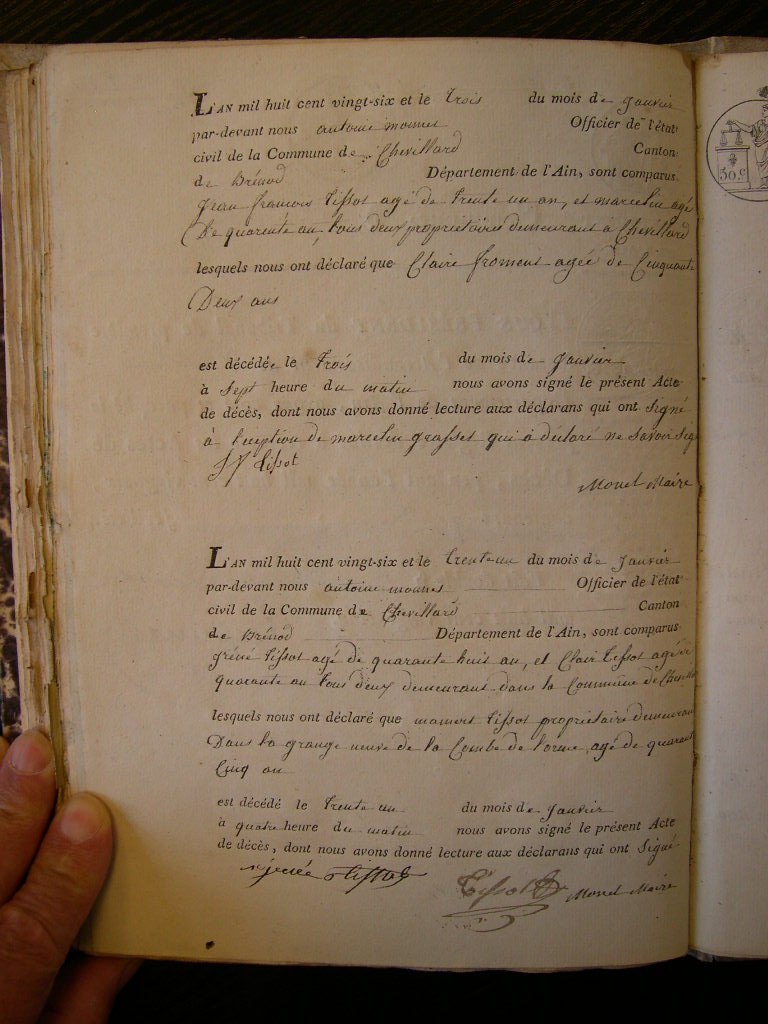 L'AN mil huit cent vingt-six et le trois du mois de janvier
par-devant nous antoine Officier de l'état
civil de la Commune de Chevillard Canton
de Brénod Département de l'Ain, sont comparus
jean francois tissot agé de trente un an, et marcelin agé
De quarente an, tous deux propriétaires demeurant à Chevillard
lesquels nous ont déclaré que Claire froment agée de Cinquante
Deux ans
est décédée le trois du mois de janvier
à sept heure du matin nous avons signé le présent Acte
de décès, dont nous avons donné lecture aux déclarans qui ont signé
à l'exeption de marcelin grasset qui à déclaré ne savoir sig
J f tissot
Monet Maire
L'AN mil huit cent vingt-six et le trente un du mois de janvier
par-devant nous antoine Officier de l'état
civil de la Commune de Chevillard Canton
de Brénod Département de l'Ain, sont comparus
tissot agé de quarante huit an, et Clair tissot agé de
quarante an tous deux demeurant dans la Commune de
lesquels nous ont déclaré que mamert tissot propriétaire demeurant
Dans la grange neuve de la Combe de agé de quarant
Cinq an
est décédé le trente un du mois de janvier
à quatre heure du matin nous avons signé le présent Acte
de décès, dont nous avons donné lecture aux déclarans qui ont Signé
tissot tissot Monet Maire
30 c